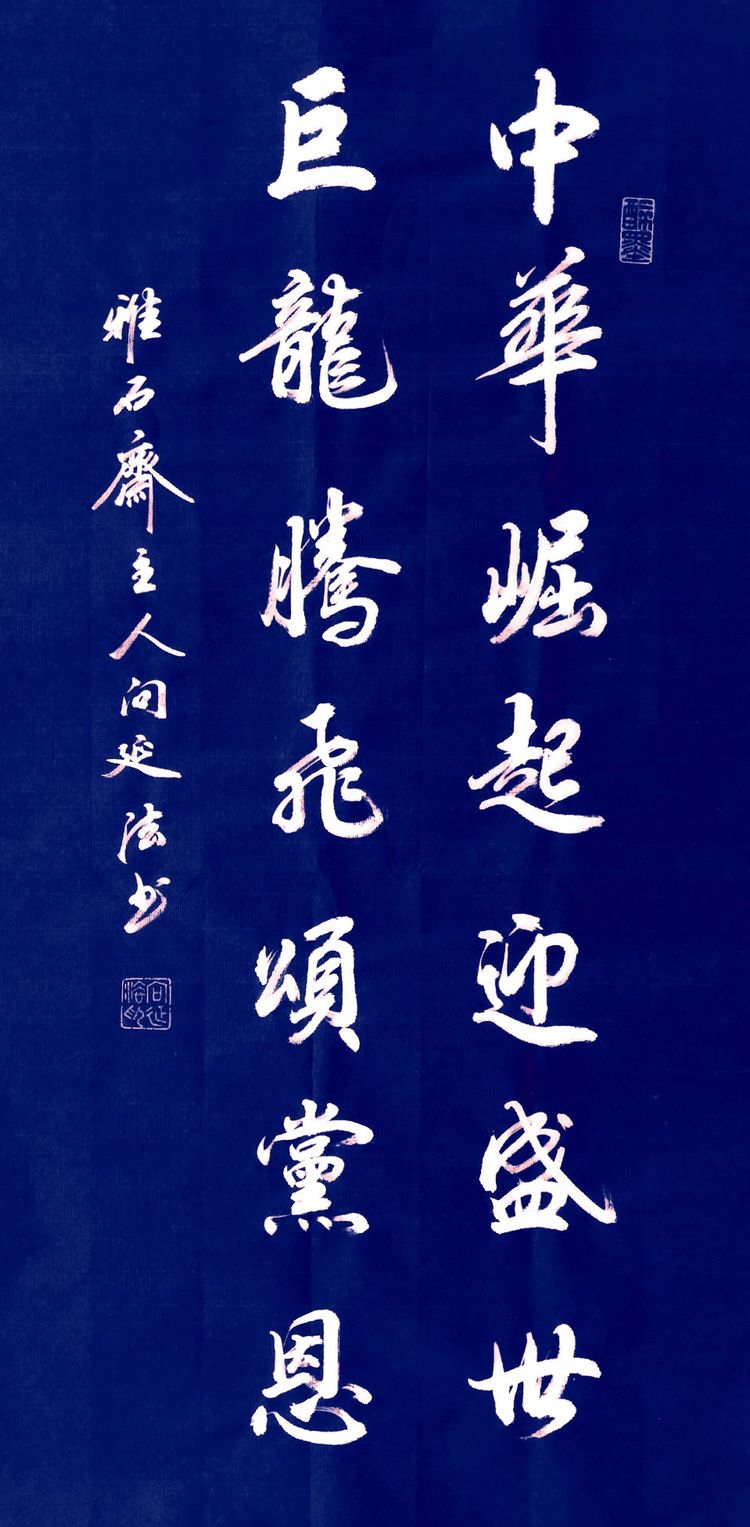 中華崛起迎盛世
巨龍騰飛頌黨恩
雅石齋主人问延法书
醉墨